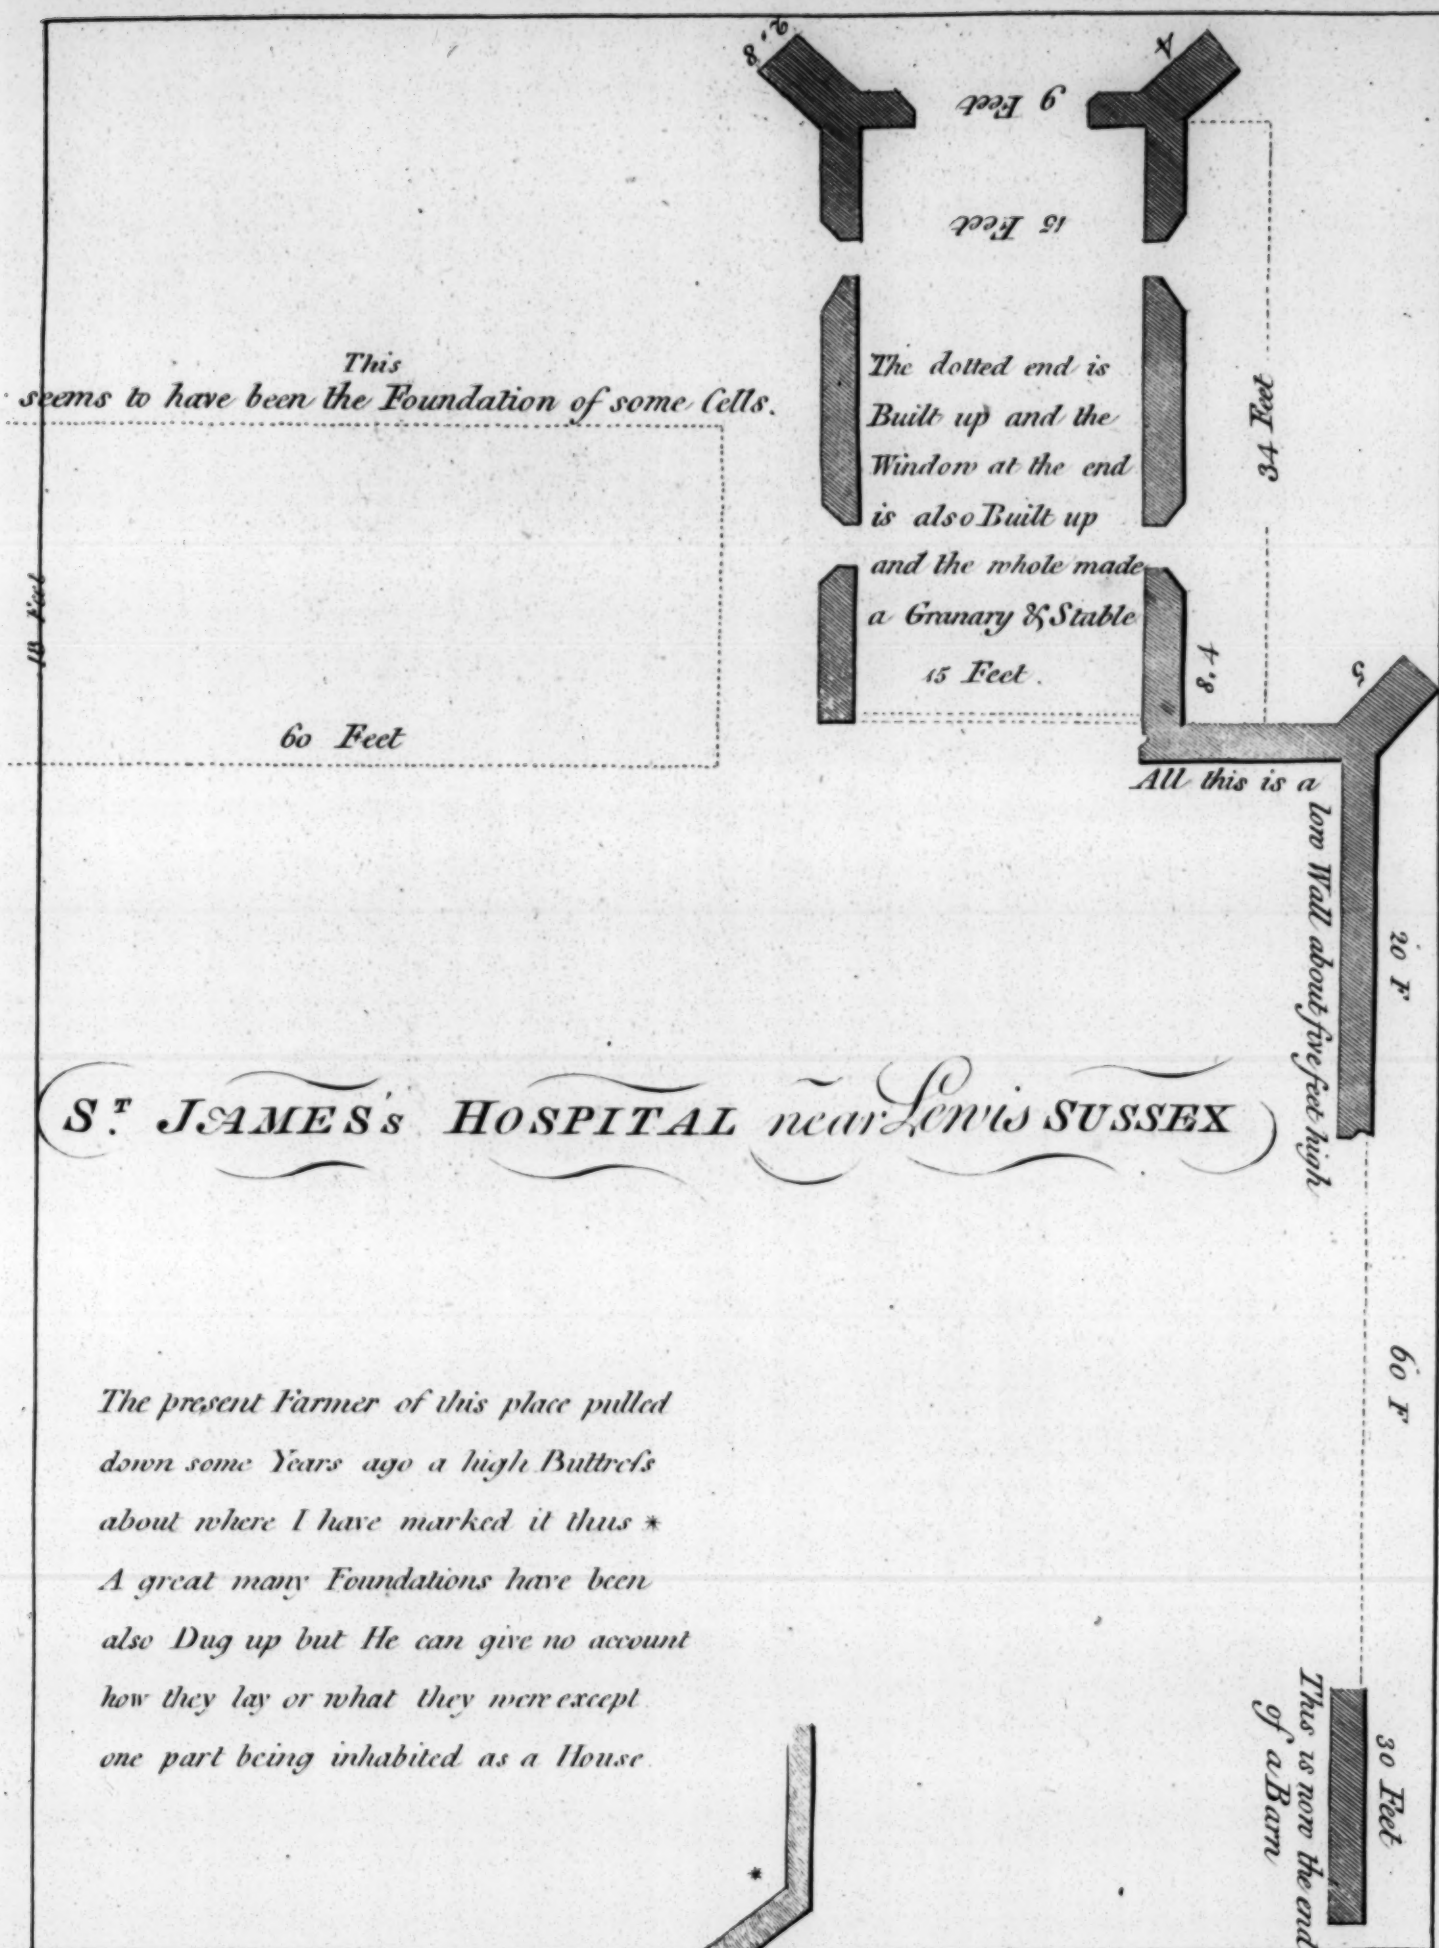 2.8
4
9 Feet
15 Feet
34 Feet
This
seems to have been the Foundation of some Cells.
18 Feet
60 Feet
The dotted end is
Built up and the
Window at the end
is also Built up
and the whole made
a Granary & Stable
15 Feet.
4.8
5
All this is a
low Wall about five feet high
20 F
ST. JAMES's HOSPITAL near Lewis SUSSEX
60 F
The present Farmer of this place pulled
down some Years ago a high Buttreſs
about where I have marked it thus *
A great many Foundations have been
also Dug up but He can give no account
how they lay or what they were except
one part being inhabited as a House
*
This is now the end
of a Barn
30 Feet